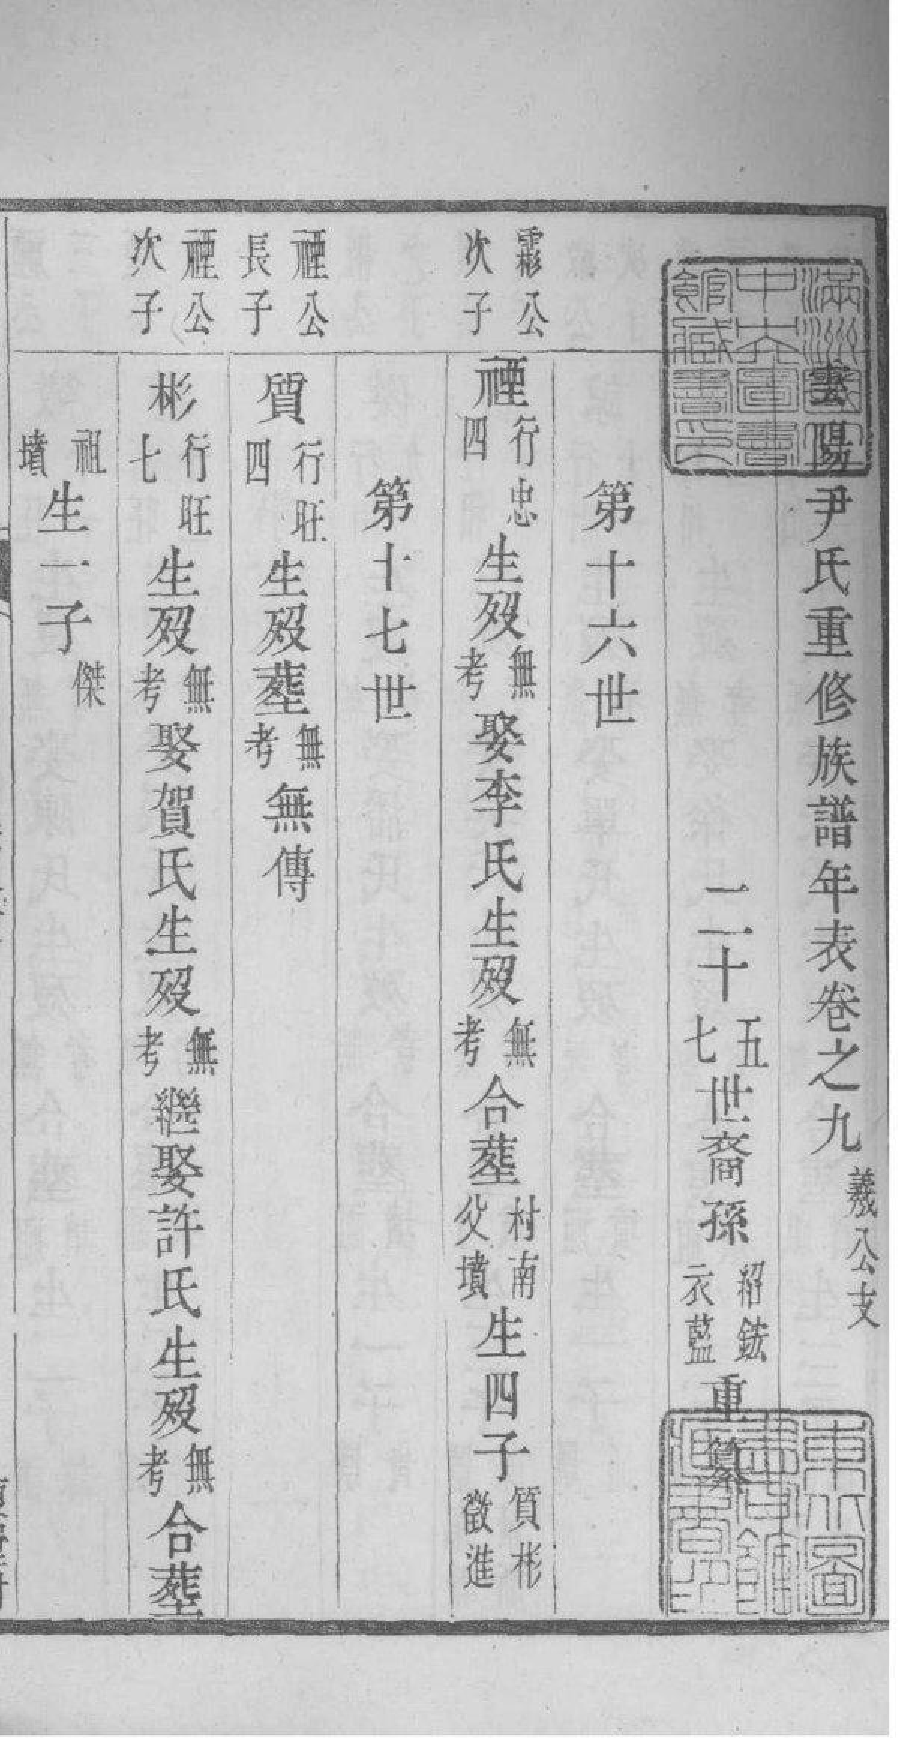 雲陽尹氏重修族譜年表卷之九 羲公支
二十五七世裔孫紹鋐衣藍重纂
第十六世
霖公次子
禋行忠四生歿無考娶李氏生歿無考合葬村南父墳生四子質彬徵進
第十七世
禋公長子
質行旺四生歿葬無考無傳
禋公次子
彬行旺七生歿無考娶賀氏生歿無考繼娶許氏生歿無考合葬
祖墳生一子傑
滿洲國立中央圖書館藏書印
東北圖書館